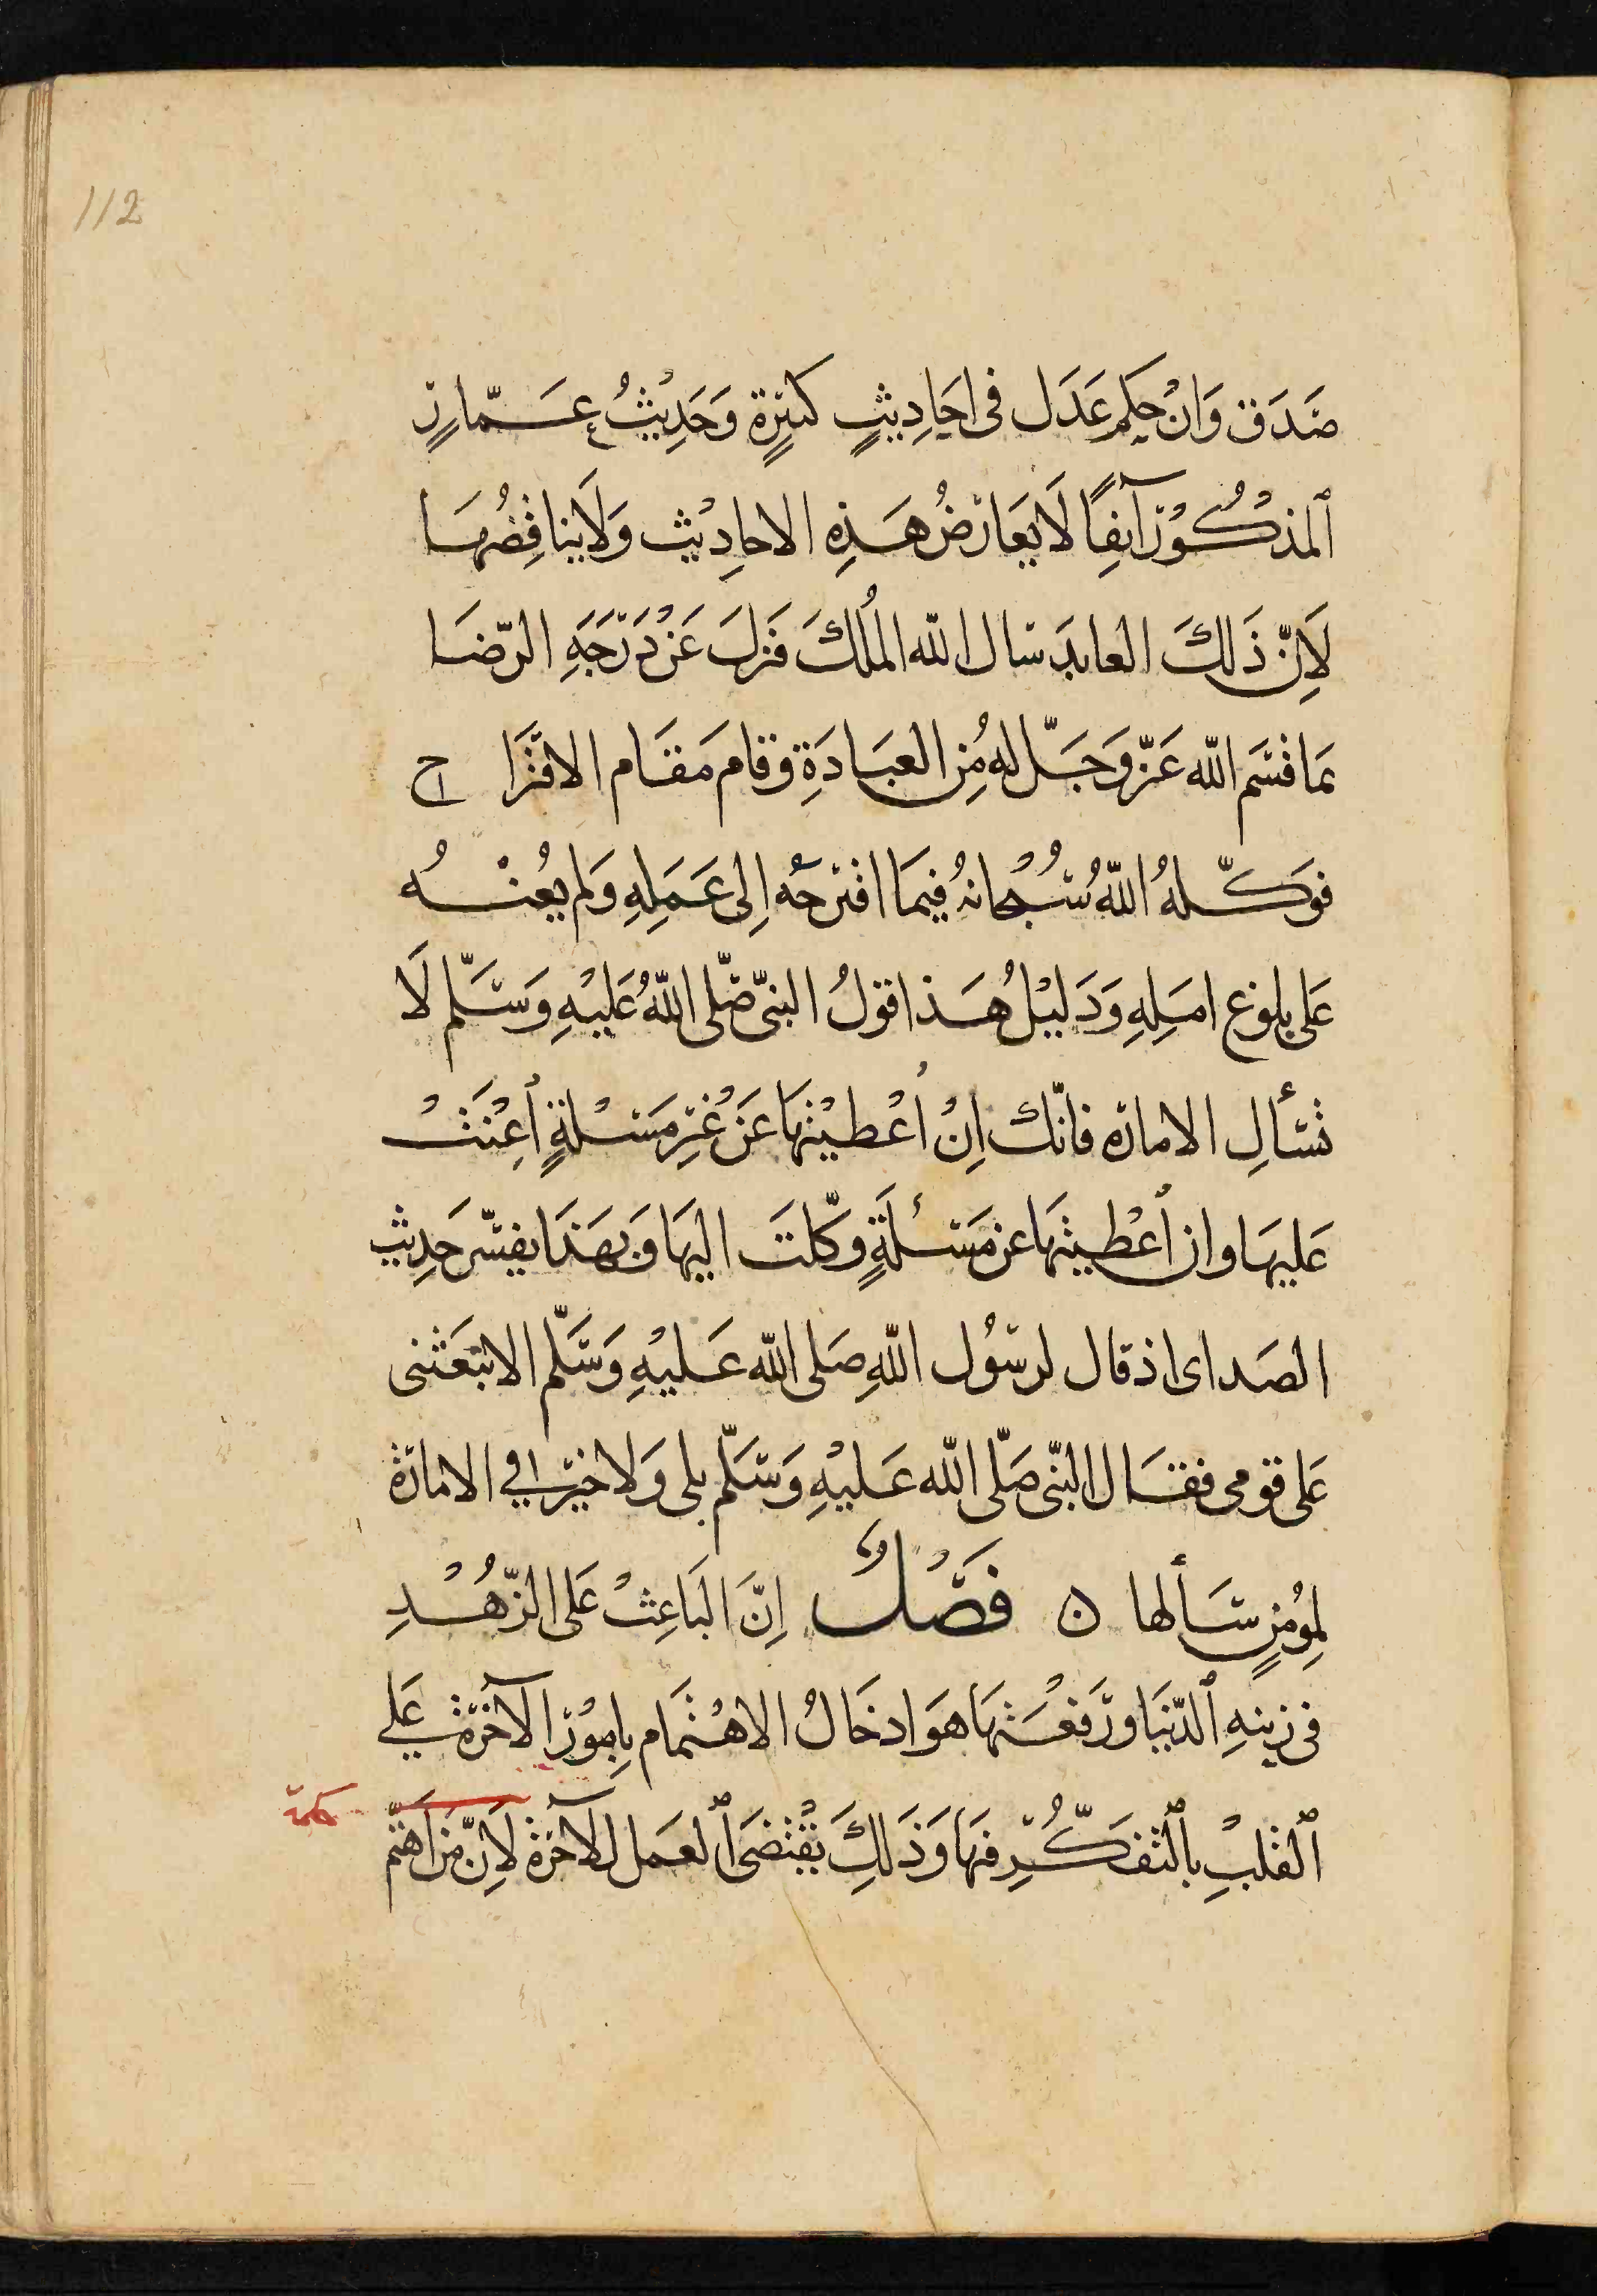 112
صَدَق وَانْ حكِم عَدَل فى احَادِيثٍ كثيرةٍ وَحَدِيثُ عَمّارٍ
ٱلمذكُوْر آنِفًا لَا يعَارضُ هَذِهِ الاحادِيْث وَلَا يناقِضُهَا
لَاِنّ ذَلكَ العابدَ سَال الله المُلكَ فنزلَ عَنْ دَرَجَهِ الرّضَا
بمَا قسَم الله عَزّ وَجَلّ لهُ مِن العبَادَةِ وقام مَقام الاقترَاح
فوَكّلهُ اللهُ سُبْحانهُ فيمَا اقترحَهُ اِلى عَمَلِهِ وَلم يُعِنْهُ
عَلى بلوغ امَلِهِ وَدَليْلُ هَذا قولُ النبىّ صَلّى اللهُ عَليْهِ وَسَلّم لَا
تسْألِ الامارة فانّك اِنْ اُعْطيْتهَا عَنْ غيْرِ مَسْئلةٍ اُعِنْتْ
عَليهَا وان اُعْطيتهَا عن مَسْئَلَةٍ وكّلتَ اليهَا وَبهَذَا يفسّر حَدِيث
الصَداى اذ قال لرسُول اللهِ صَلى الله عَليْهِ وَسَلّم الا تبْعَثنى
عَلى قومى فقال النبّى صَلّى الله عَليْهِ وَسَلّم بلى وَلا خيْر في الامارَة
لمِوُمنٍ سَألها ن فَصْلٌ اِنّ البَاعِثْ عَلى الزّهْدِ
فى زينهِ ٱلدّنيَا وَرفعَتهَا هوَ ادخَالُ الاهْتمَام بِامُوْر الآخرَة عَلى
ٱلقلبِ بالتفَكُّرِ فيهَا وَذَلِكَ يقْتضَى ٱلعَمل للآخرَة لَاِنّ مَن اهَتمّ
حكمة